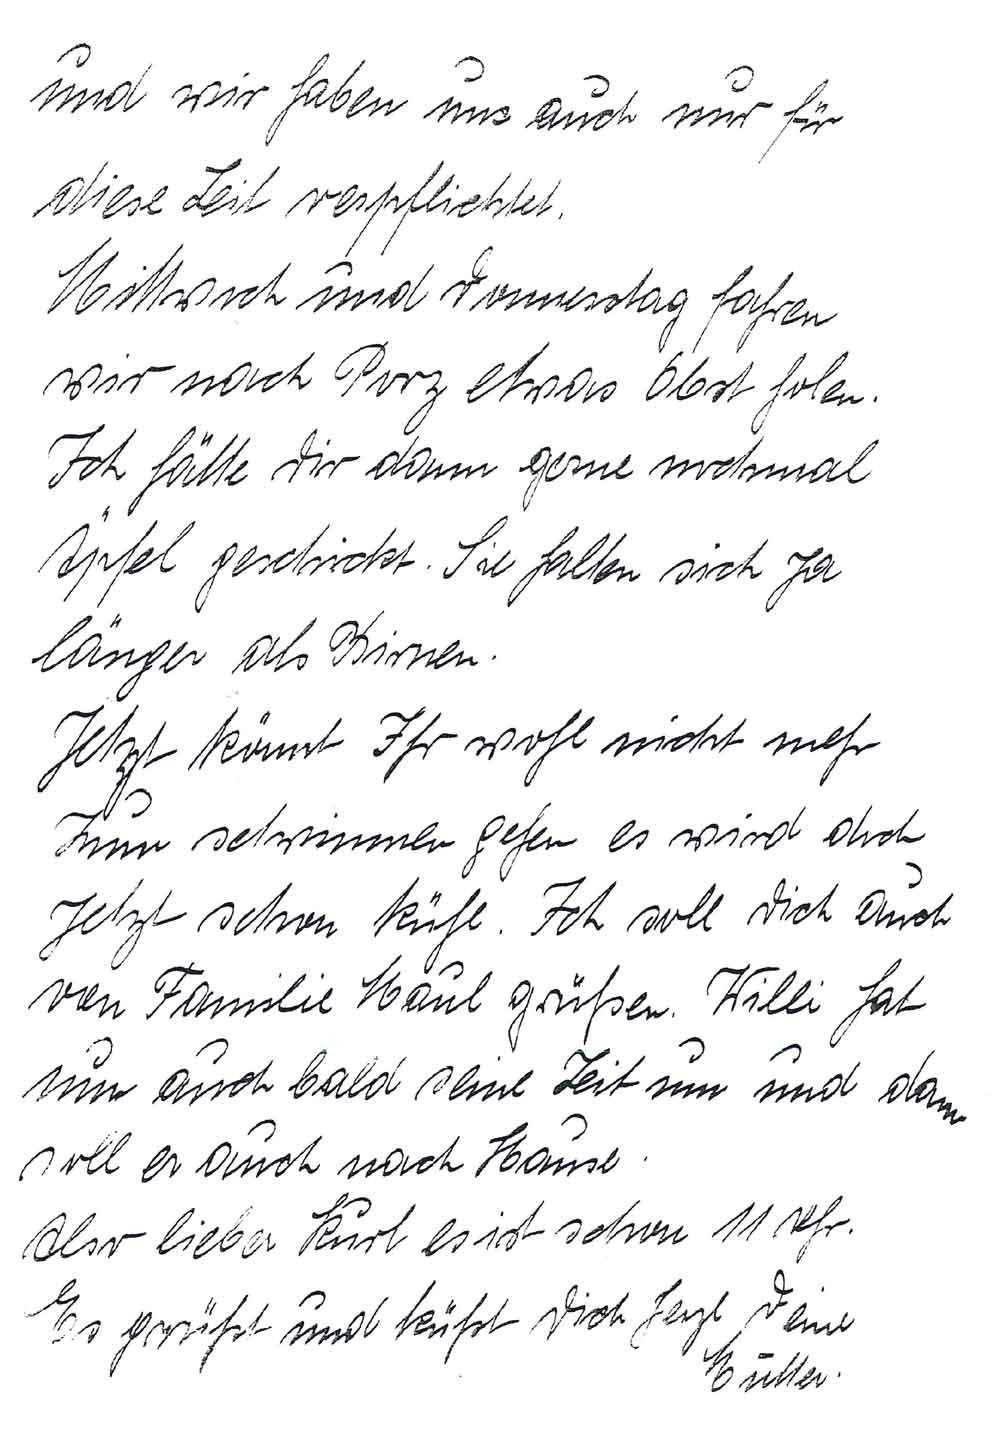 und wir haben uns auch nur für
diese Zeit verpflichtet.
Mittwoch und Donnerstag fahren
wir nach Porz etwas Obst holen.
Ich hätte dir dann gerne nochmal
Äpfel geschickt. Sie halten sich ja
länger als Birnen.
Jetzt könnt Ihr wohl nicht mehr
zum schwimmen gehen es wird doch
jetzt schon kühl. Ich soll dich auch
von Familie Haul grüßen. Willi hat
nun auch bald seine Zeit um und dann
soll er auch nach Hause.
Also lieber Kurt es ist schon 11 Uhr.
Es grüßt und küßt Dich herzl Deine
Mutter.